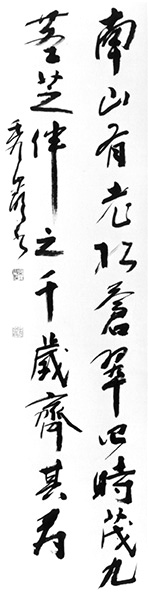 南山有老松蒼翠四時茂九
莖芝伴之千歲齊其壽